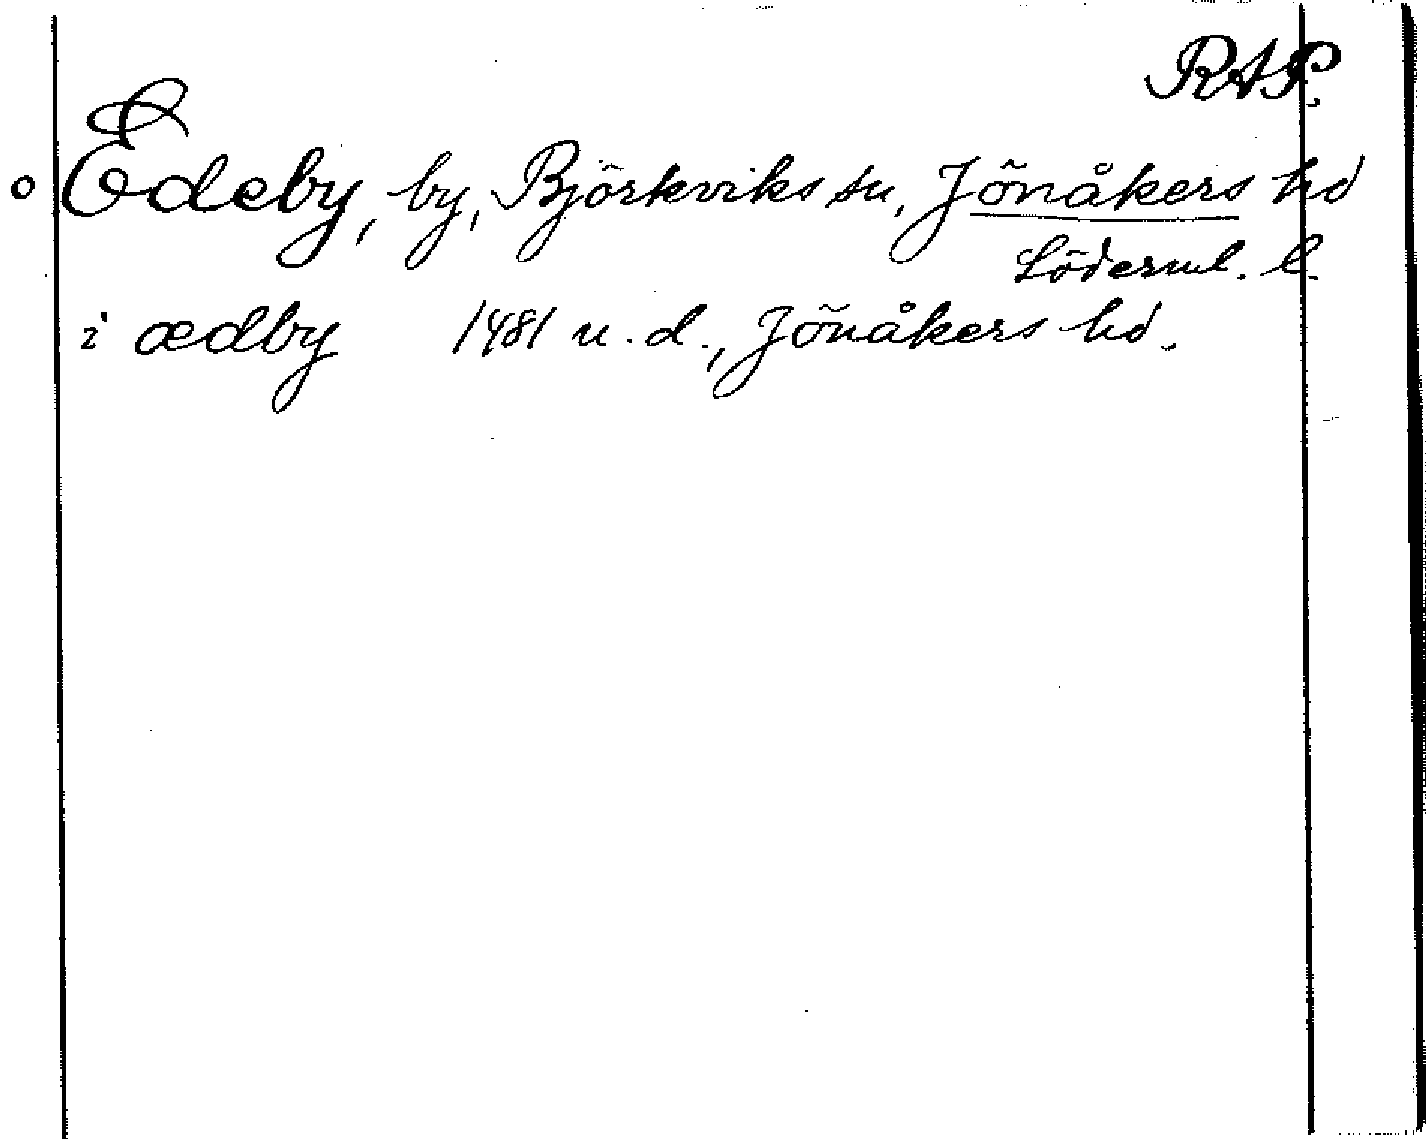 RAP.
o Edeby, by, Björkviks sn, Jönåkers hd
Söderml. l.
i ædby 1481 u. d., Jönåkers hd.